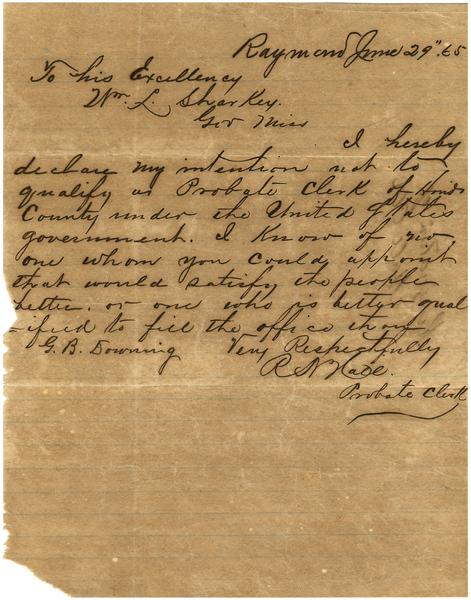 Raymond June 29" 65
To his Excellency
Wm. L. Sharkey.
Gov Miss
I hereby
declare my intention not to
qualify as Probate Clerk of Hinds
County under the United States
government. I Know of no
one whom you could appoint
that would satisfy the people
better. or one who is better qual
-ified to fill the office than
G. B. Downing Very Respectfully
R N
Probate Clerk